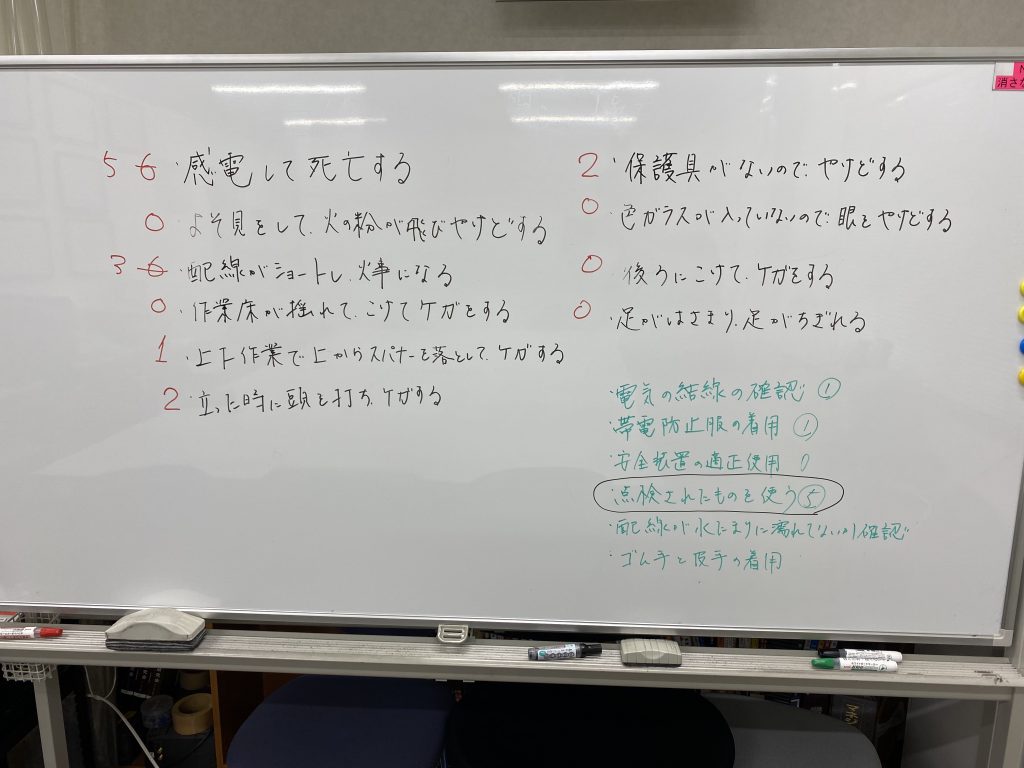 5 6 ・感電して死亡する
0 ・よそ見をして、火の粉が飛びやけどする
3 6 ・配線がショートし、火事になる
0 ・作業床が揺れて、こけてケガをする
1 ・上下作業で上からスパナーを落として、ケガする
2 ・立った時に頭を打ち、ケガする
2 ・保護具がないので、やけどする
0 ・色ガラスが入っていないので眼をやけどする
0 ・後ろにこけて、ケガをする
0 ・足がはさまり、足がちぎれる
・電気の結線の確認 ①
・帯電防止服の着用 ①
・安全装置の適正使用 0
・点検されたものを使う ⑤
・配線が水たまりに濡れてないか確認
・ゴム手と皮手の着用
消さな